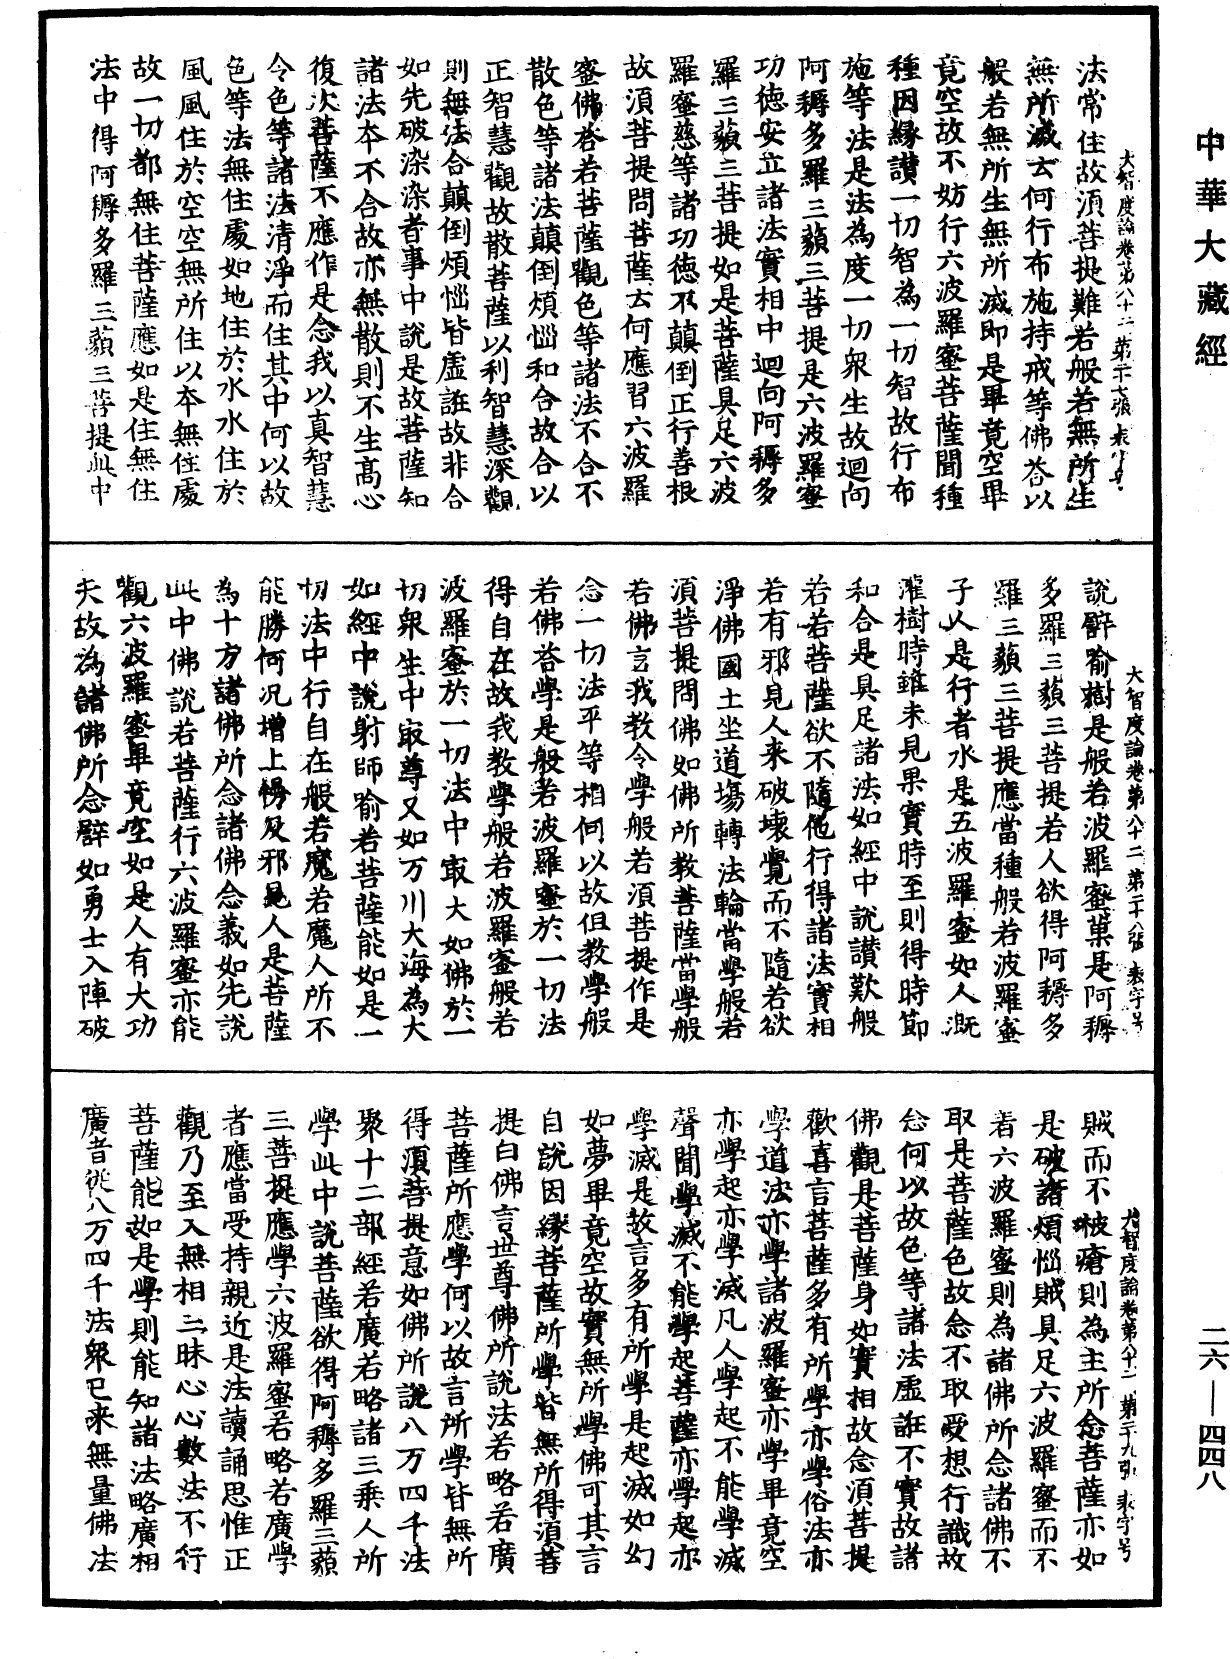 中華大藏經
大智度論卷第八十二　第二十七張　表字号
法常住故須菩提難若般若無所生
無所滅云何行布施持戒等佛荅以
般若無所生無所滅即是畢竟空畢
竟空故不妨行六波羅蜜菩薩聞種
種因緣讃一切智為一切智故行布
施等法是法為度一切衆生故迴向
阿耨多羅三藐三菩提是六波羅蜜
功德安立諸法實相中迴向阿耨多
羅三藐三菩提如是菩薩具足六波
羅蜜慈等諸功德不顛倒正行善根
故須菩提問菩薩云何應習六波羅
蜜佛荅若菩薩觀色等諸法不合不
散色等諸法顛倒煩惱和合故合以
正智慧觀故散菩薩以利智慧深觀
則無法合顛倒煩惱皆虛誑故非合
如先破染染者事中說是故菩薩知
諸法本不合故亦無散則不生高心
復次菩薩不應作是念我以真智慧
令色等諸法清淨而住其中何以故
色等法無住處如地住於水水住於
風風住於空空無所住以本無住處
故一切都無住菩薩應如是住無住
法中得阿耨多羅三藐三菩提此中
大智度論卷第八十二　第二十八張　表字号
說譬喻樹是般若波羅蜜菓是阿耨
多羅三藐三菩提若人欲得阿耨多
羅三藐三菩提應當種般若波羅蜜
子人是行者水是五波羅蜜如人溉
灌樹時雖未見果實時至則得時節
和合是具足諸法如經中說讃歎般
若若菩薩欲不隨他行得諸法實相
若有邪見人來破壞覺而不隨若欲
淨佛國土坐道場轉法輪當學般若
須菩提問佛如佛所教菩薩當學般
若佛言我教令學般若須菩提作是
念一切法平等相何以故但教學般
若佛荅學是般若波羅蜜於一切法
得自在故我教學般若波羅蜜般若
波羅蜜於一切法中取大如佛於一
切衆生中取尊又如万川大海為大
如經中說射師喻若菩薩能如是一
切法中行自在般若魔若魔人所不
能勝何況增上慢及邪見人是菩薩
為十方諸佛所念諸佛念義如先說
此中佛說若菩薩行六波羅蜜亦能
觀六波羅蜜畢竟空如是人有大功
夫故為諸佛所念譬如勇士入陣破
大智度論卷第八十二　第二十九張　表字号
賊而不被瘡則為主所念菩薩亦如
是破諸煩惱賊具足六波羅蜜而不
着六波羅蜜則為諸佛所念諸佛不
取是菩薩色故念不取受想行識故
念何以故色等諸法虛誑不實故諸
佛觀是菩薩身如實相故念須菩提
歡喜言菩薩多有所學亦學俗法亦
學道法亦學諸波羅蜜亦學畢竟空
亦學起亦學滅凡人學起不能學滅
聲聞學滅不能學起菩薩亦學起亦
學滅是故言多有所學是起滅如幻
如夢畢竟空故實無所學佛可其言
自說因緣菩薩所學皆無所得須菩
提白佛言世尊佛所說法若略若廣
菩薩所應學何以故言所學皆無所
得須菩提意如佛所說八万四千法
聚十二部經若廣若略諸三乘人所
學此中說菩薩欲得阿耨多羅三藐
三菩提應學六波羅蜜若略若廣學
者應當受持親近是法讀誦思惟正
觀乃至入無相三昧心心數法不行
菩薩能如是學則能知諸法略廣相
廣者從八万四千法衆已來無量佛法
二六—四四八